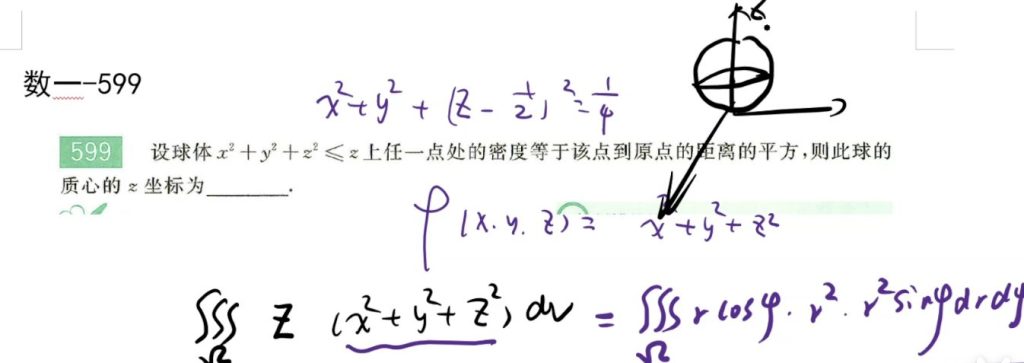 z
数一-599
x²+y²+(z-1/2)²=1/4
599 设球体 x²+y²+z²≤z 上任一点处的密度等于该点到原点的距离的平方,则此球的
质心的 z 坐标为________.
ρ(x.y.z)= x²+y²+z²
∭Ω z (x²+y²+z²) dv = ∭Ω r cosφ · r² · r² sinφ dr dφ